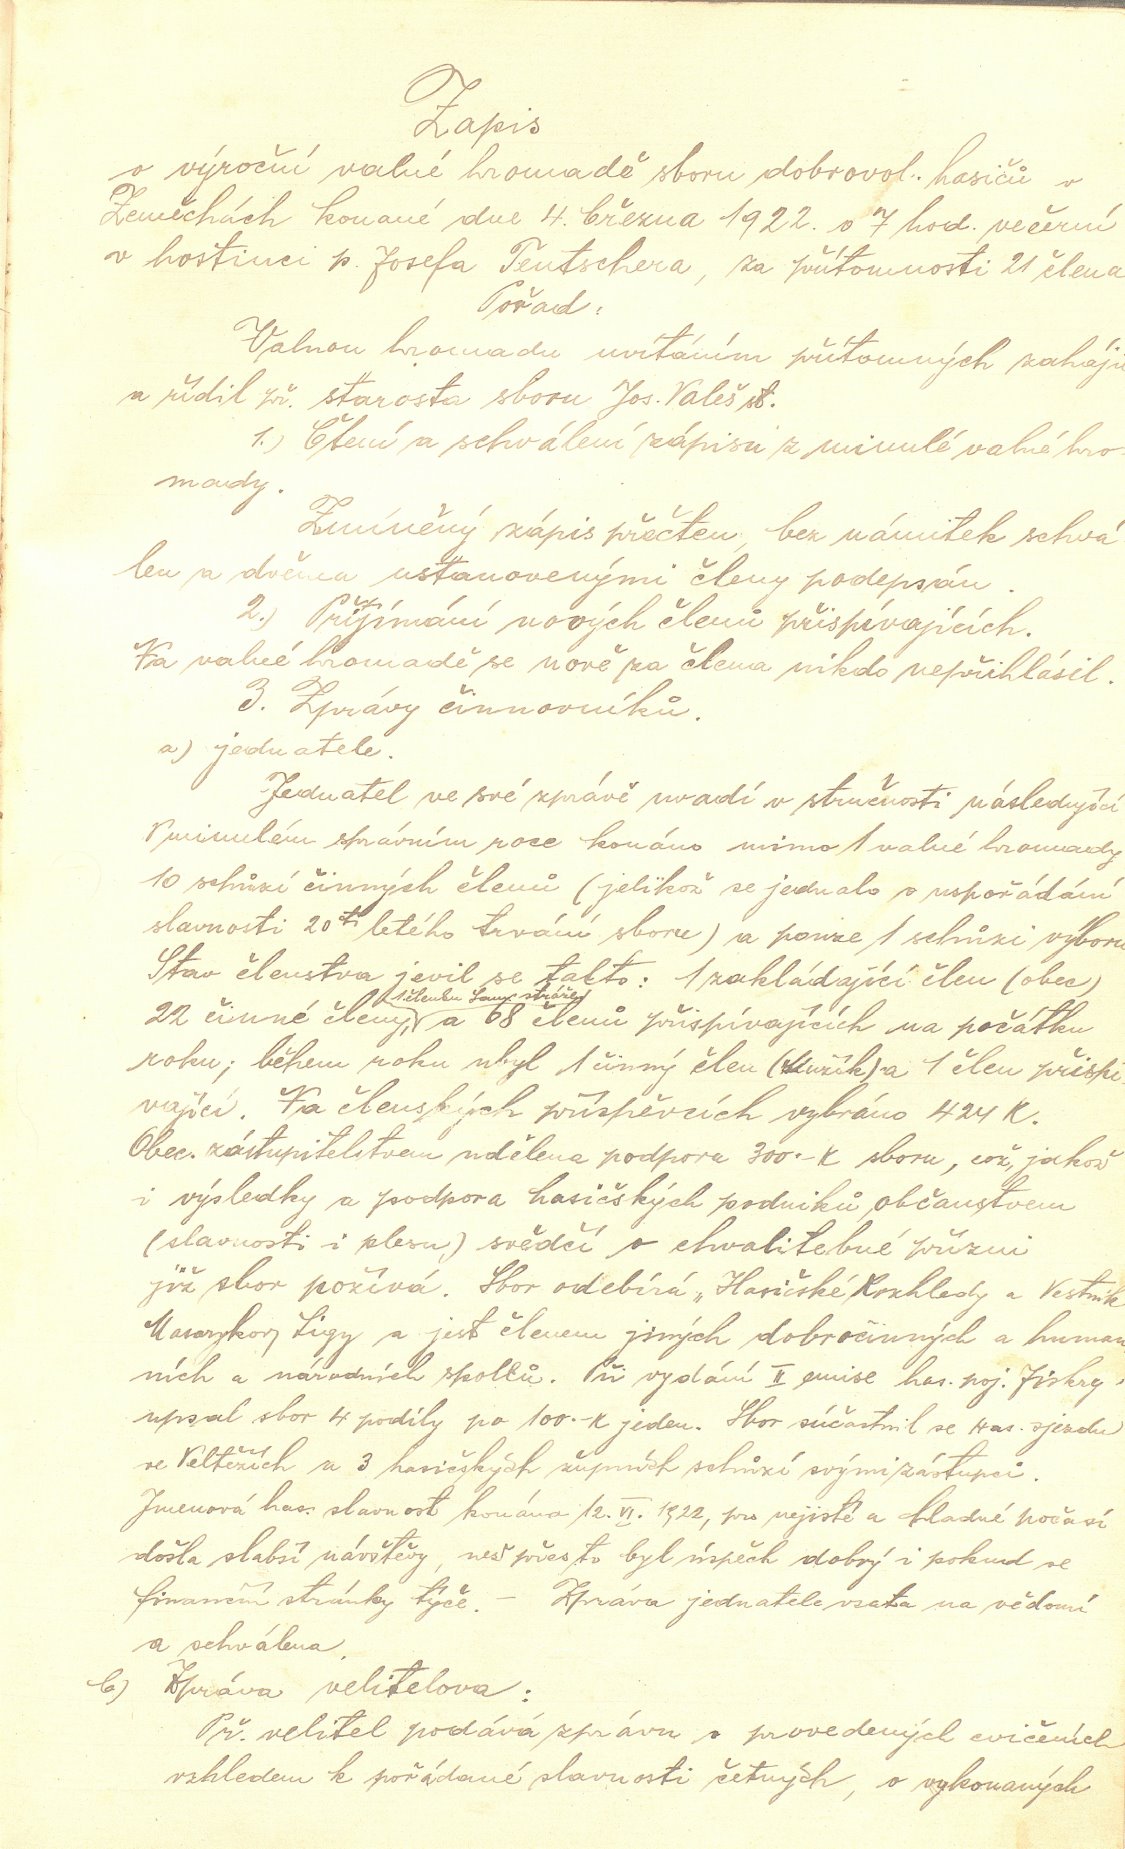 Zápis
o výroční valné hromadě sboru dobrovol. hasičů v
Zeměchách konané dne 4. března 1922. o 7 hod. večerní
v hostinci p. Josefa Teutschera, za přítomnosti 21 člena
Pořad:
Valnou hromadu uvítáním přítomných zahájil
a řídil př. starosta sboru Jos. Valeš st.
1.) Čtení a schválení zápisu z minulé valné hro-
mady.
Zmíněný zápis přečten, bez námitek schvá
len a dvěma ustanovenými členy podepsán.
2.) Přijímání nových členů přispívajících.
Na valné hromadě se nově za člena nikdo nepřihlásil.
3. Zprávy činnovníků.
a) jednatele.
Jednatel ve své zprávě uvádí v stručnosti následující
V minulém správním roce konáno mimo 1 valné hromady
10 schůzí činných členů (jelikož se jednalo o uspořádání
slavnosti 20ti letého trvání sboru) a pouze 1 schůzi výboru
Stav členstva jevil se takto: 1 zakládající člen (obec)
22 činné členy, 1 členku Sam. stráže, a 68 členů přispívajících na počátku
roku; během roku ubyl 1 činný člen a 1 člen přispí
vající. Na členských příspěvcích vybráno 424 K.
Obec. zástupitelstvem udělena podpora 300.- K sboru, což, jakož
i výsledky a podpora hasičských podniků občanstvem
(slavnosti i plesu) svědčí o chvalitebné přízni
jíž sbor požívá. Sbor odebírá „Hasičské Rozhledy a Vestník
Masarykovy Ligy a jest členem jiných dobročinných a human
ních a národních spolků. Při vydání II emise has. poj. Jiskry
upsal sbor 4 podíly po 100.- K jeden. Sbor súčastnil se Has. sjezdu
ve Veltěžích a 3 hasičských župních schůzí svými zástupci.
Jmenová has. slavnost konána 12. VI. 1922, pro nejisté a chladné počasí
došla slabší návštěvy, než přes to byl úspěch dobrý i pokud se
finanční stránky týče. - Zpráva jednatele vzata na vědomí
a schválena.
b) Zpráva velitelova:
Př. velitel podává zprávu o provedených cvičeních
vzhledem k pořádané slavnosti četných, o vykonaných